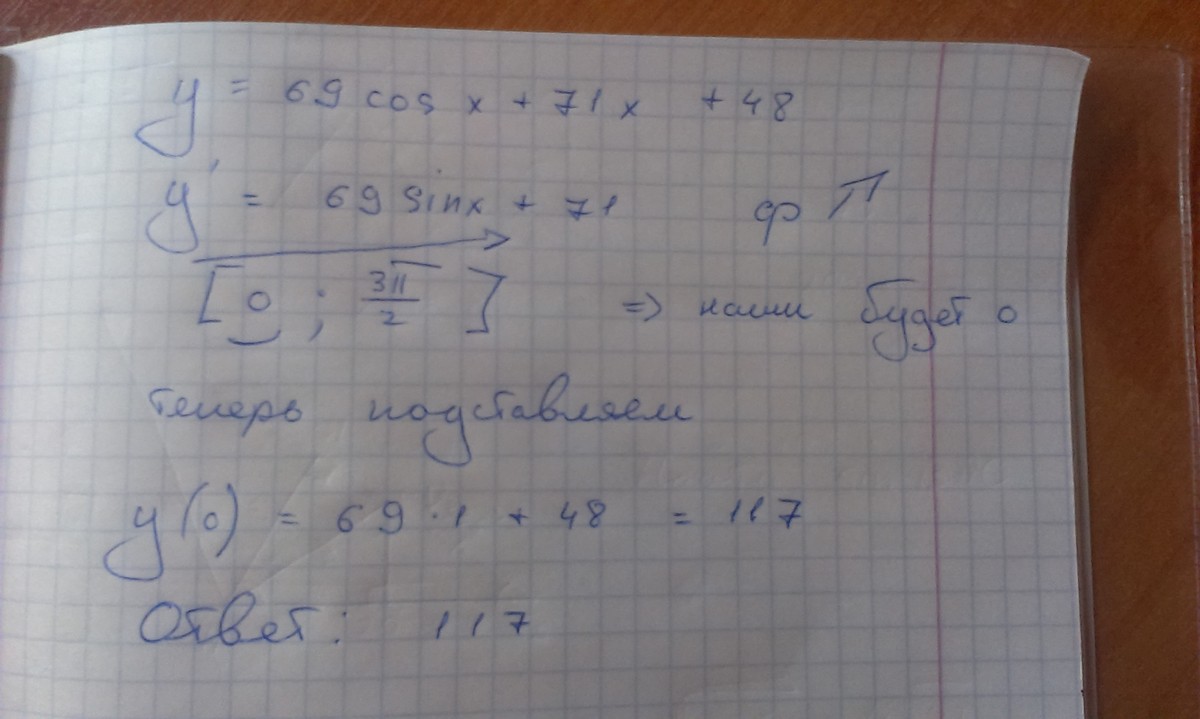 y = 69 cos x + 71 x + 48
y' = 69 sinx + 71 ф ↗
[ 0 ; 3π/2 ] => наши будет 0
теперь подставляем
y (0) = 69 · 1 + 48 = 117
Ответ: 117